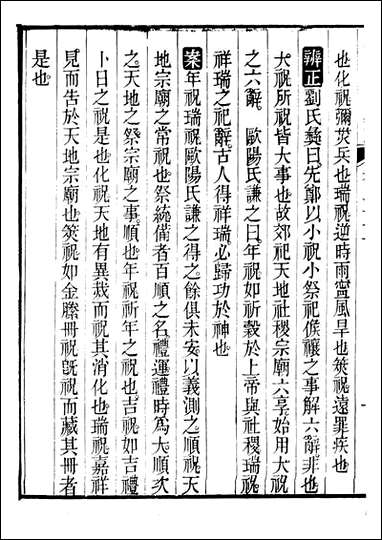 也化祝彌烖兵也瑞祝逆時雨寧風旱也筴祝遠罪疾也
辨正劉氏彝曰先鄭以小祝小祭祀侯禳之事解六辭非也
大祝所祝皆大事也故郊祀天地社稷宗廟六享始用大祝
之六辭 歐陽氏謙之曰年祝如祈穀於上帝與社稷瑞祝
祥瑞之祀辭古人得祥瑞必歸功於神也
案年祝瑞祝歐陽氏謙之得之餘俱未安以義測之順祝天
地宗廟之常祝也祭統備者百順之名禮運禮時為大順次
之天地之祭宗廟之事順也年祝祈年之祝也吉祝如吉禮
卜日之祝是也化祝天地有異烖而祝其消化也瑞祝嘉祥
見而告於天地宗廟也筴祝如金縢冊祝旣祝而藏其冊者
是也